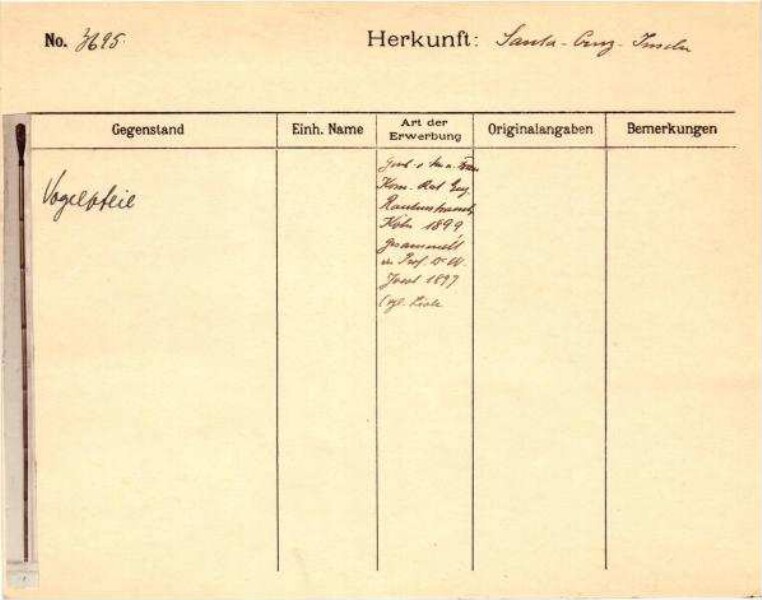 No. 3695. Herkunft: Santa-Cruz-Inseln
Gegenstand Einh. Name Art der Erwerbung Originalangaben Bemerkungen
Vogelpfeil
Frau
Kom. Rat Eug.
Rautenstrauch
Köln 1899
gesammelt
v. Prof. Dr W.
Joest 1897
(vgl. Liste